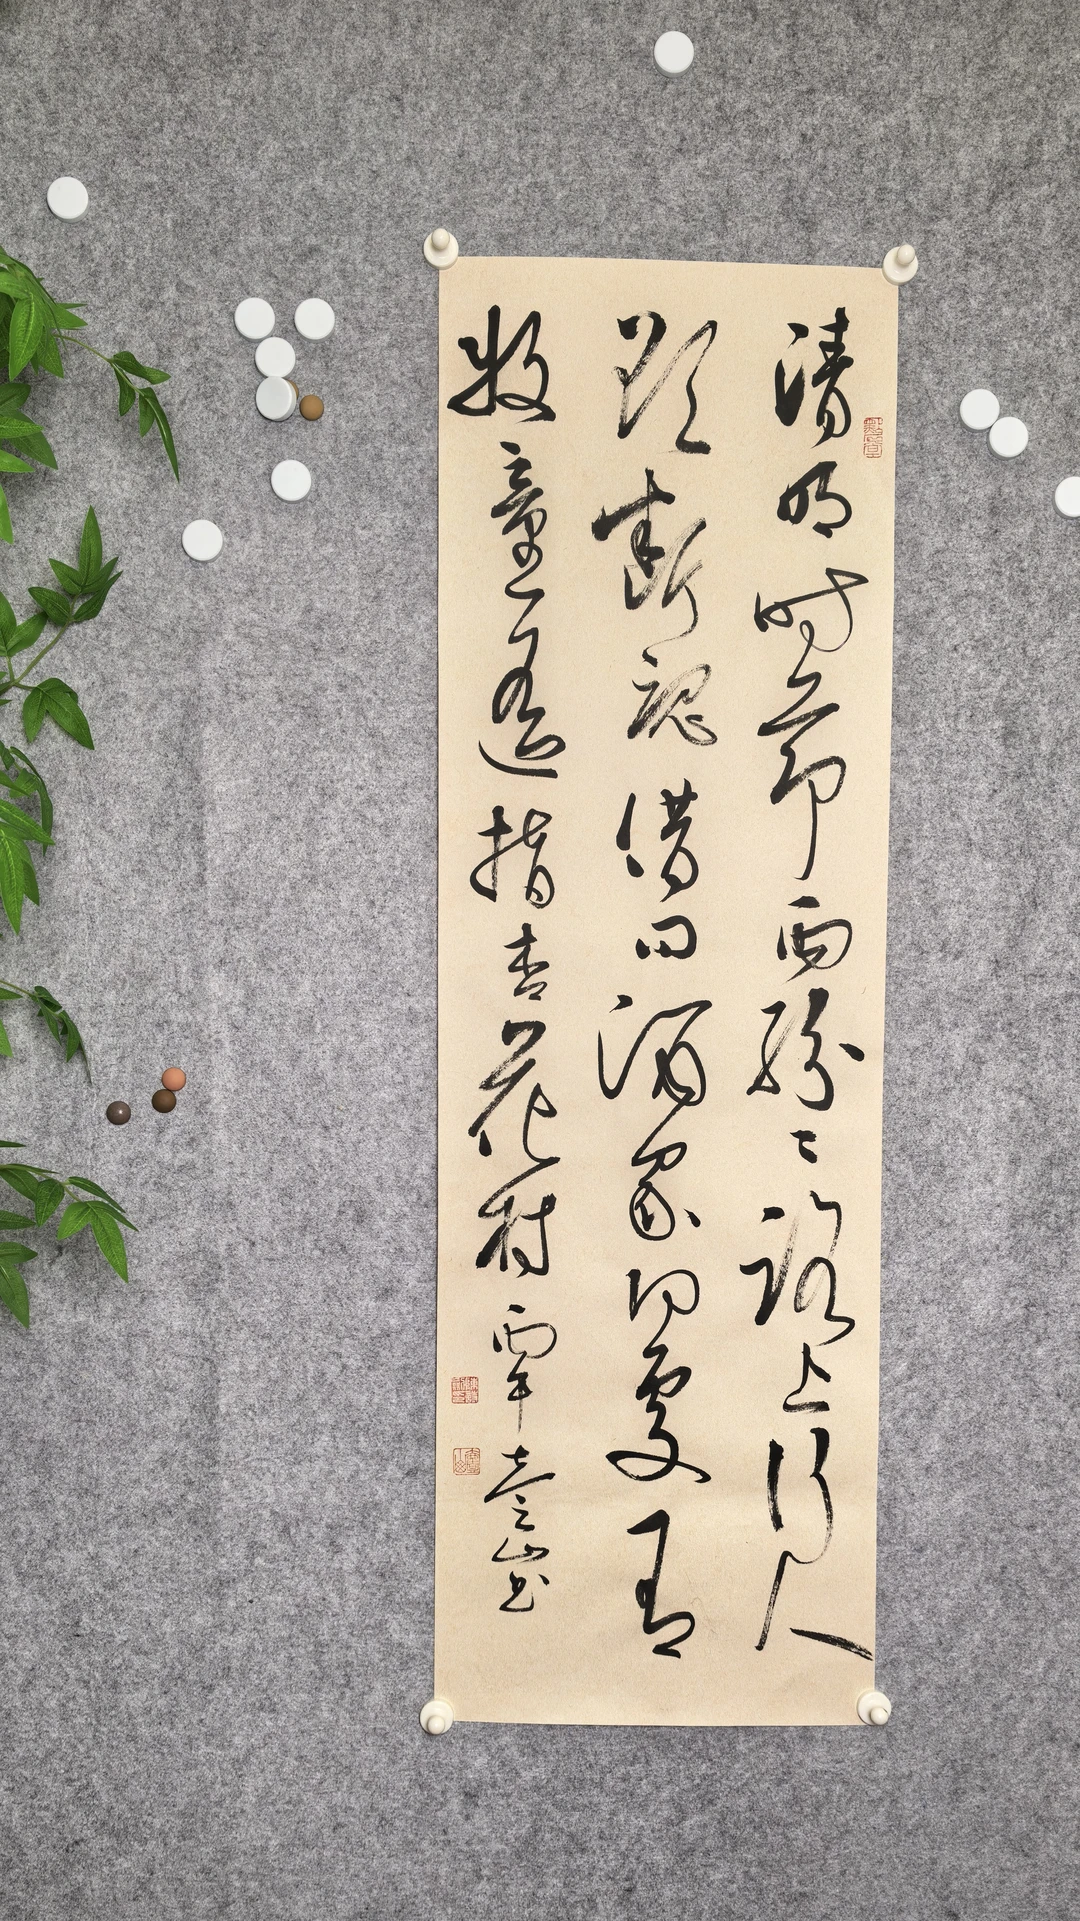 清明时节雨纷纷路上行人
欲断魂借问酒家何处有
牧童遥指杏花村